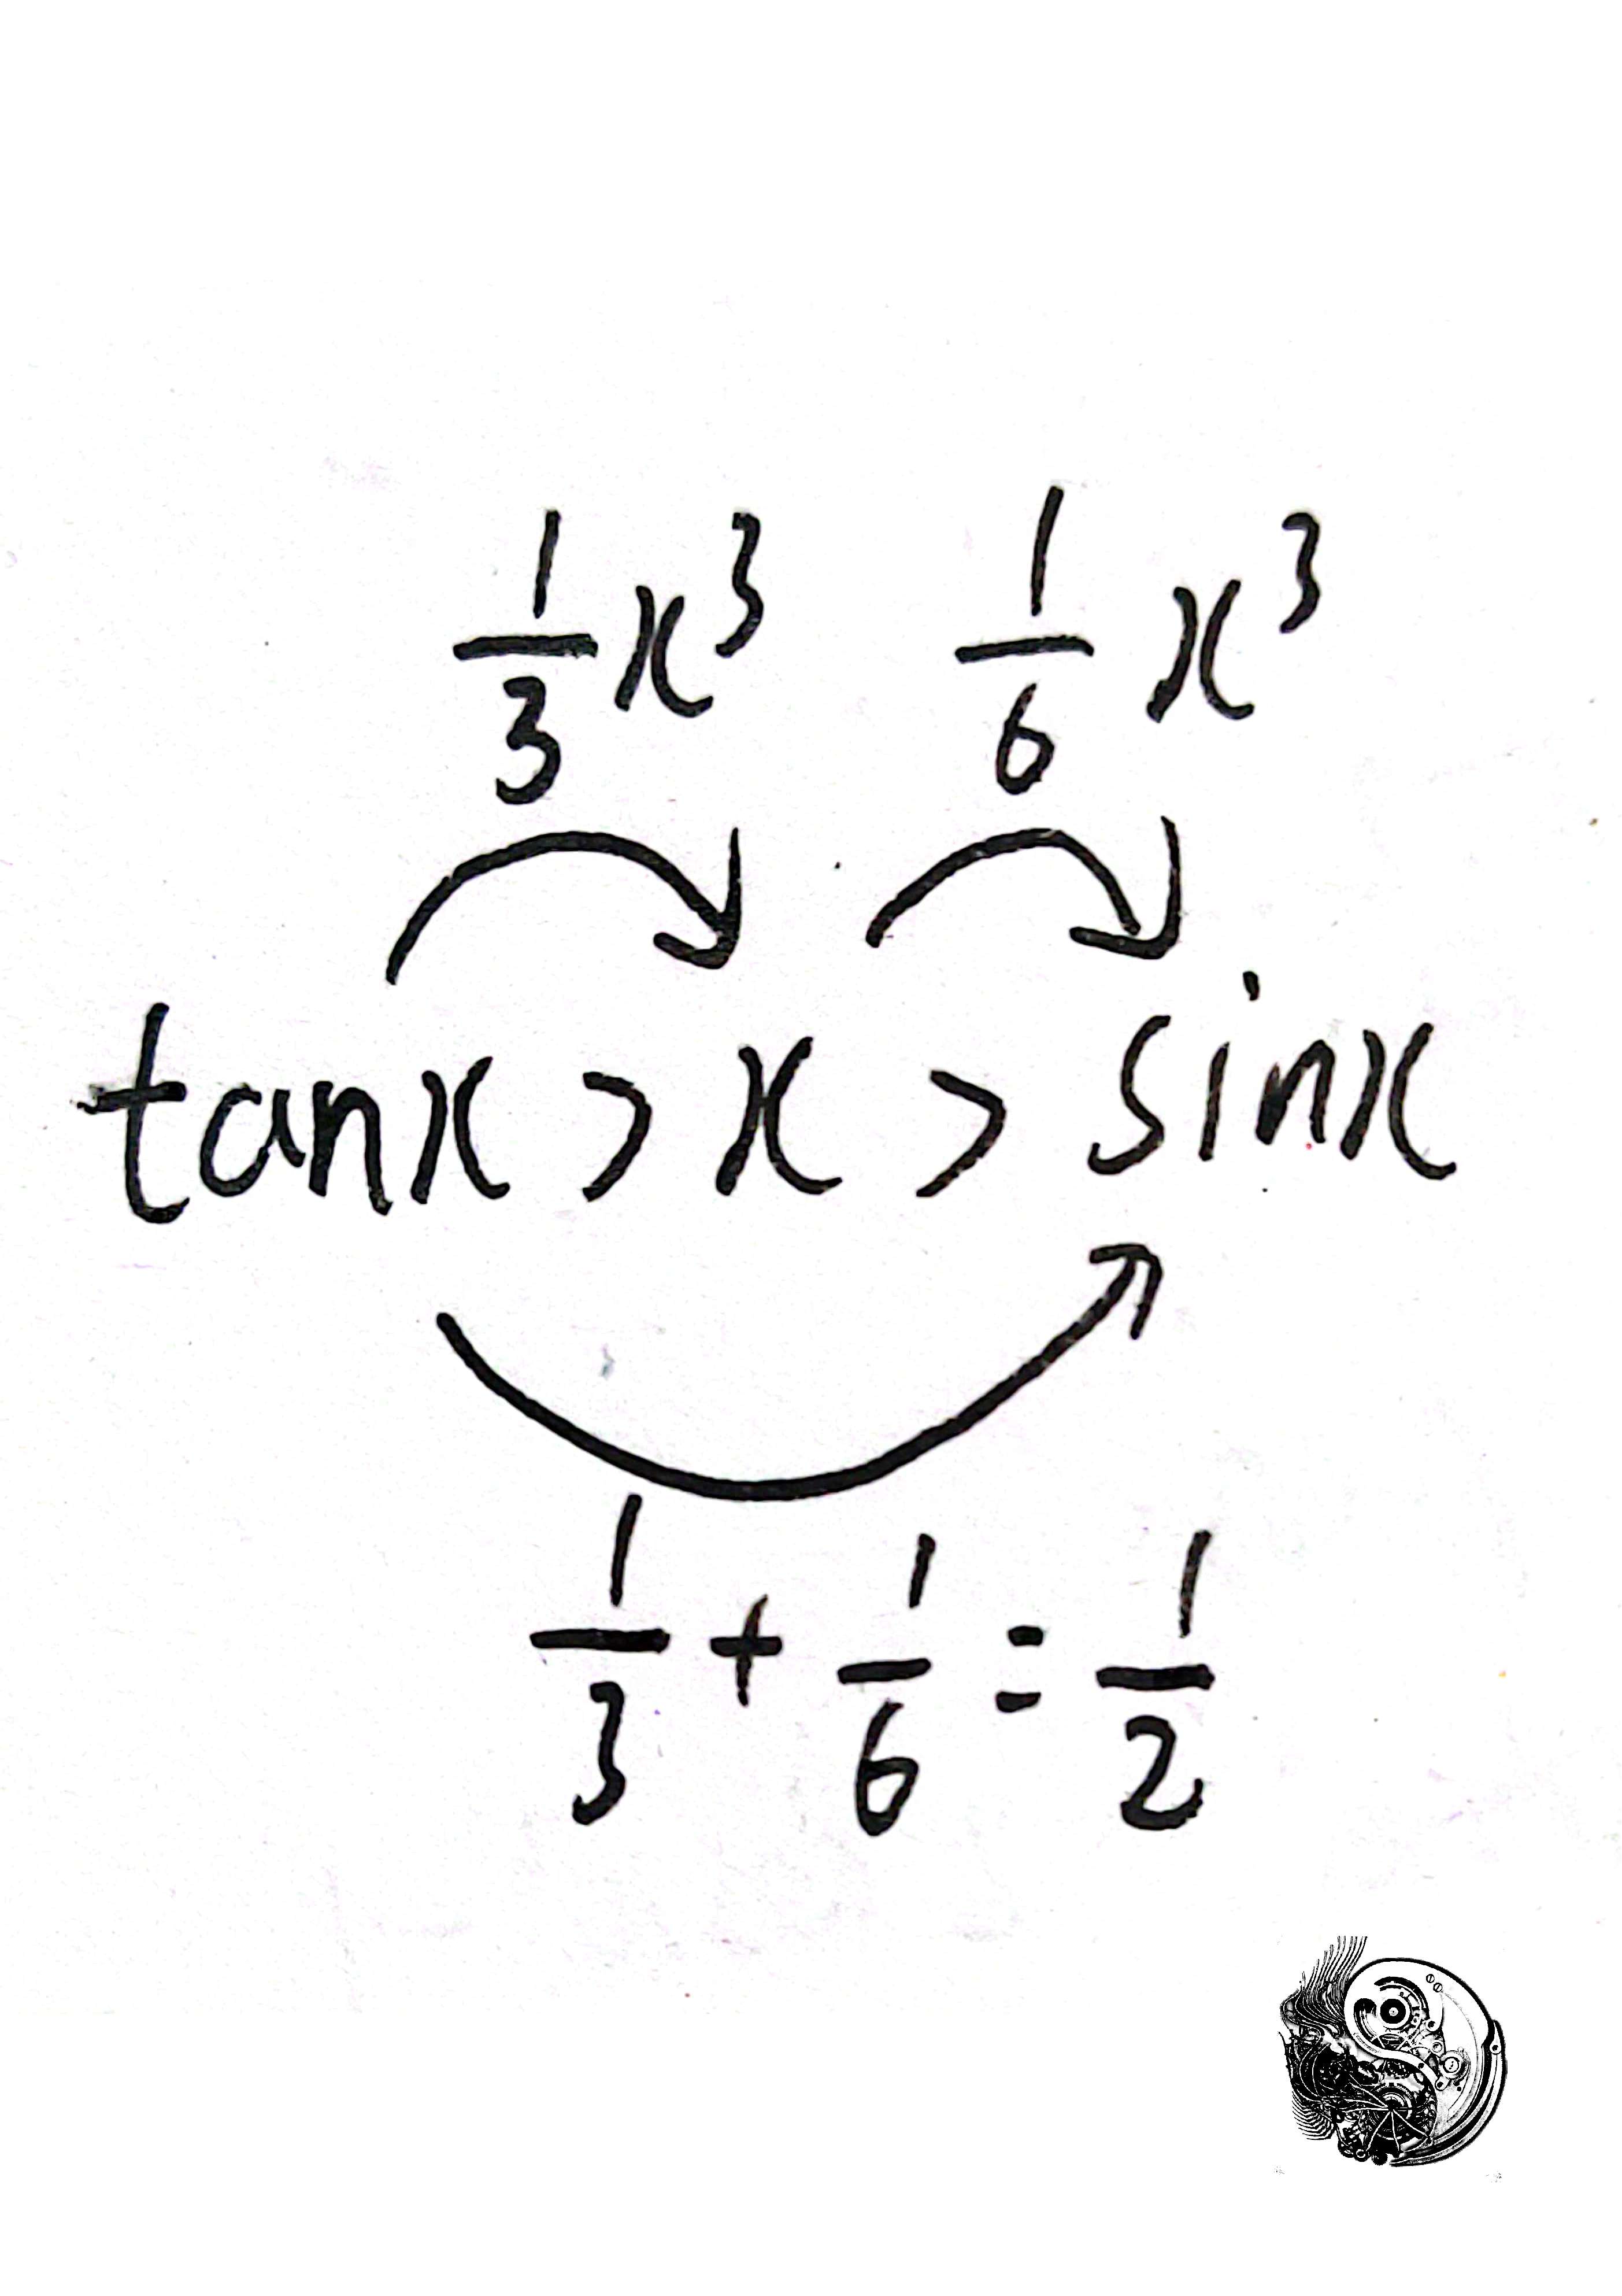 1/3 x³ 1/6 x³
tanx > x > sinx
1/3 + 1/6 = 1/2